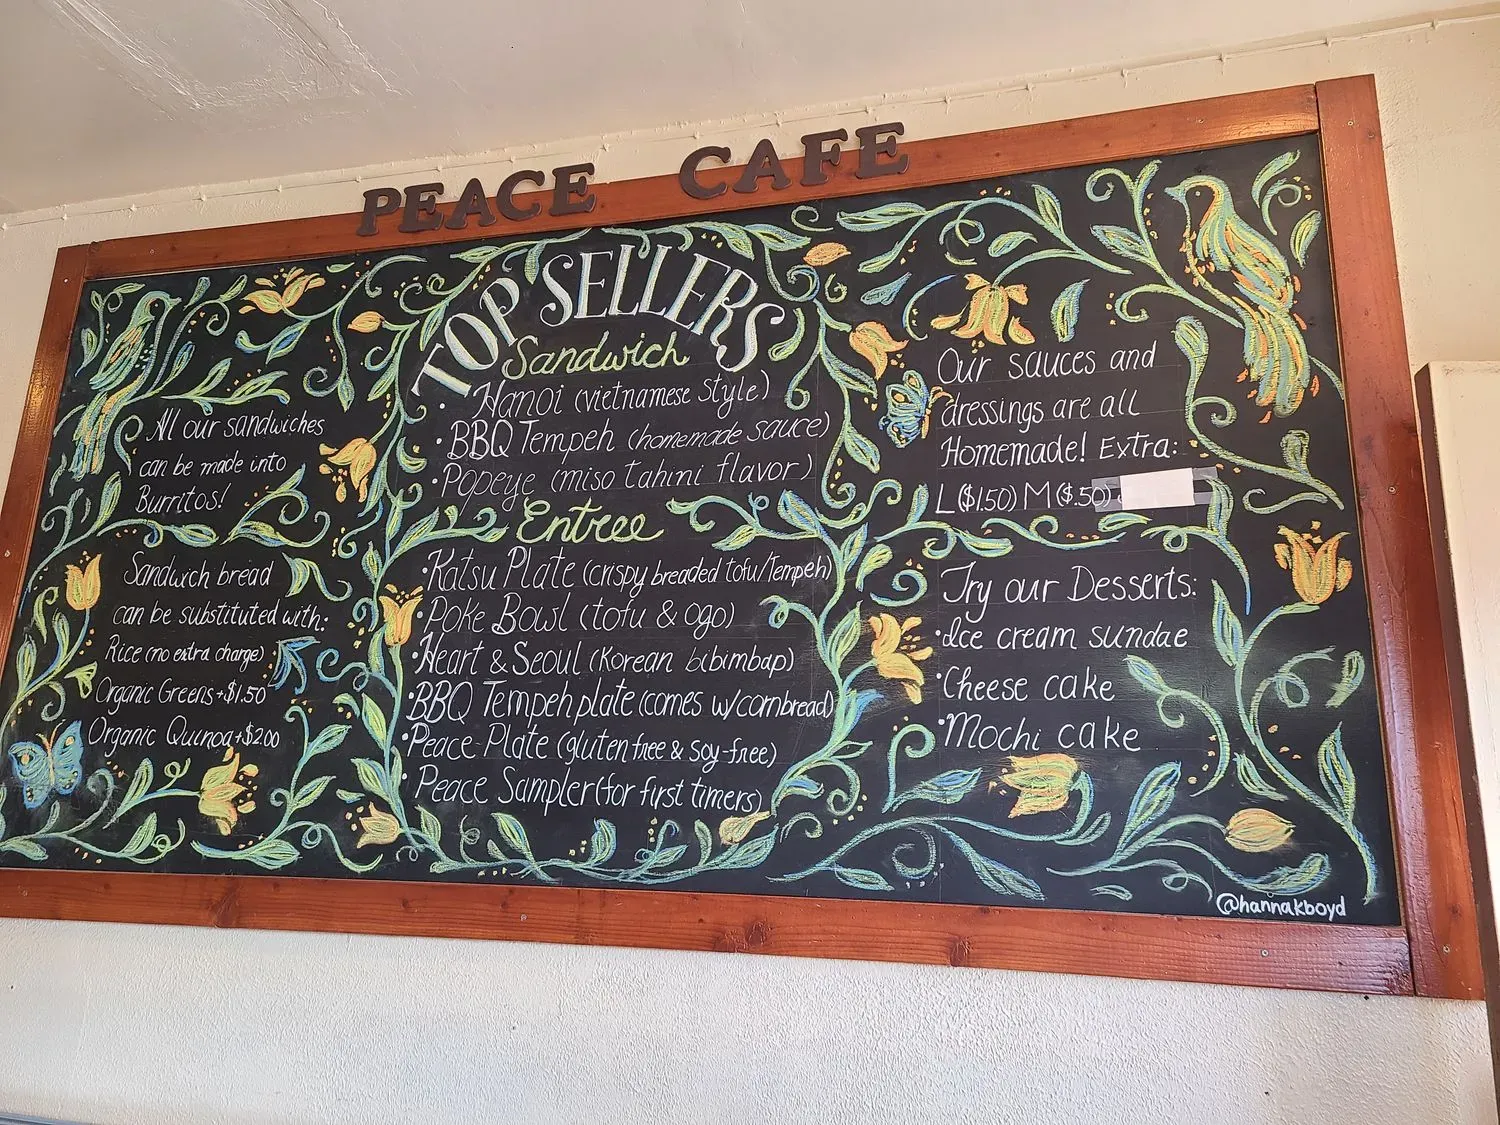 PEACE CAFE
TOP SELLERS
Sandwich
• Hanoi (vietnamese style)
• BBQ Tempeh (homemade sauce)
• Popeye (miso tahini flavor)
Entree
• Katsu Plate (crispy breaded tofu/Tempeh)
• Poke Bowl (tofu & ogo)
• Heart & Seoul (Korean bibimbap)
• BBQ Tempeh plate (comes w/cornbread)
• Peace Plate (gluten free & soy-free)
• Peace Sampler (for first timers)
All our sandwiches
can be made into
Burritos!
Sandwich bread
can be substituted with:
Rice (no extra charge)
Organic Greens +$1.50
Organic Quinoa +$2.00
Our sauces and
dressings are all
Homemade! Extra:
L ($1.50) M ($.50)
Try our Desserts:
• Ice cream sundae
• Cheese cake
• Mochi cake
@hannakboyd